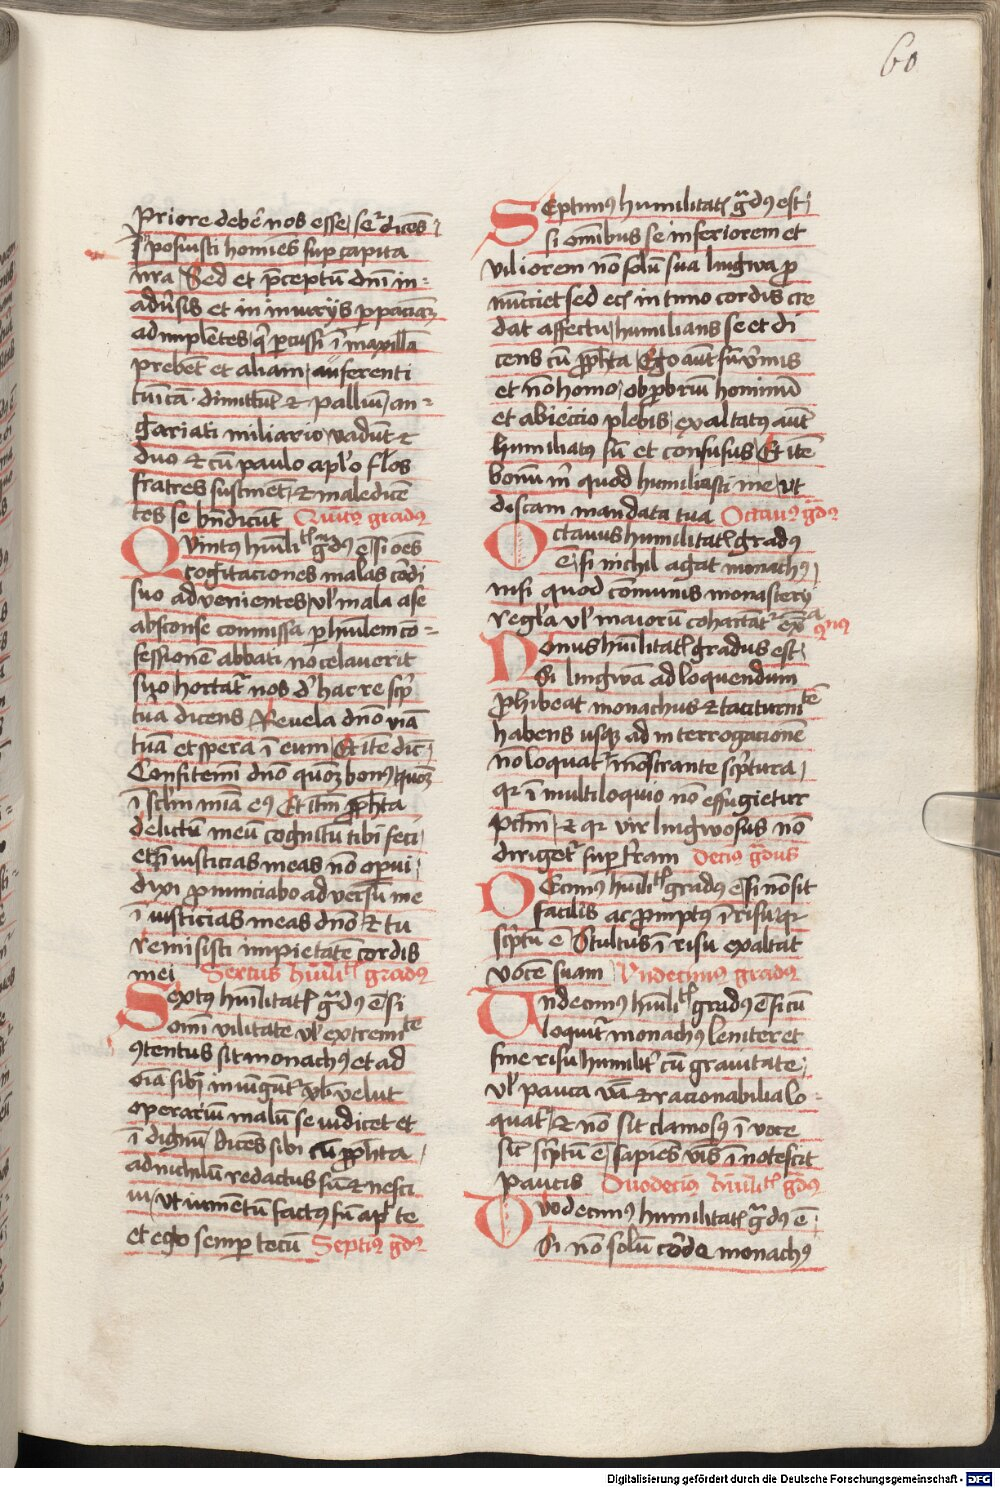 60
priore debem̄ nos esse seqr̄ dicēs
Iposuisti homīes sup capita
nr̄a Sed et p̄ceptū dnī in=
adūsis et in iniurijs p pacīaȝ
adimplētes q̄ pcussi ī maxillā
prebēt et aliam auferenti
tunicā dimittūt et palliū an=
gariati miliario vadūt et
duo et cū paulo aplo fl̄os
fratres sustinēt et maledicē
tes se bn̄dicūt Quīt9 gradus
Quint9 hūilitꝭ gr̄d9 ē si oēs
cogitaciones malas cordi
suo advenientes vl̄ mala a se
absconse commissa p hūilem cō=
fessionē abbati nō celaverit
suo hortat̄ nos d' hac re scp̄
tura dicens Revela dn̄o viā
tuā et spera ī eum Et itē dic̄
Confitemī dn̄o quoȝ bon9 quoȝ
ī sclm̄ mīa ei9 Et itm̄ ꝓpheta
delictū meū cognitū tibi feci
et iusticias meas nō opui
dixi pronunciabo adversū me
ī iusticias meas dn̄o et tu
remisisti impietatē cordis
mei Sextus hūilitꝭ grad9
Sext9 hūilitatꝭ gr̄d9 ē si
omī vilitate vl̄ extremitte
ꝯtentus sit monach9 et ad
oīa sibi iniūgūt vl̄ velut
operariū malū se iudicet et
īdignū dices sibi cū ꝓpheta
ad nichilū redactus sū et nesci
vi vt iumentū fact9 sū apꝭ te
et ego semp tecū Septi9 gd9
Septim9 humilitatꝭ gr̄d9 est
si omībus se inferiorem et
viliorem nō solū sua lingwa p
nūcciet sed eciā intimo cordis cre
dat affectu humilians se et di
cens cū ꝓpheta Ego aūt sū v̄mis
et nō homo obprobriū hominū
et abieccio plebis exaltat9 aūt
humiliat9 sū et confusus Et itē
bonū m̄ quod humiliasti me vt
discam mandata tua Octau9 gr̄d9
Octavus humilitatꝭ gradus
ē si nichil agat monach9
nisi quod cōmunis monasterij
regl̄a vl̄ maiorū cohortāt̄ exēpla
Nonus hūilitatꝭ gradus est
Si lingwā ad loquendum
ꝓhibeat monachus et taciturnitē
habens usqꝫ ad interrogacionē
nō loquat̄ mōstrante scp̄tura
qr ī multiloquio nō effugietur
pctm̄ et qr vir lingwosus nō
diriget̄ sup terram Deci9 gr̄dus
Decim9 hūilitꝭ gradus ē si nō sit
facilis ac prompt9 ī risu qr
scp̄tū ē Stultus ī risu exaltat
vocē suam Undecim9 gradus
Undecim9 hūilitꝭ gradus ē si cū
loquit̄ monach9 leniter et
sine risu humilit̄ cū gravitate
vl̄ pauca v̄ba et racionabilia lo=
quat̄ et nō sit clamos9 ī voce
sic̄ scp̄tū ē sapiēs v̄bis īnotescit
paucis Duodeci9 hūilitꝭ gr̄d9
Duodecim9 humilitatꝭ gr̄d9 ē
Si nō solū corde monach9
Digitalisierung gefördert durch die Deutsche Forschungsgemeinschaft - DFG